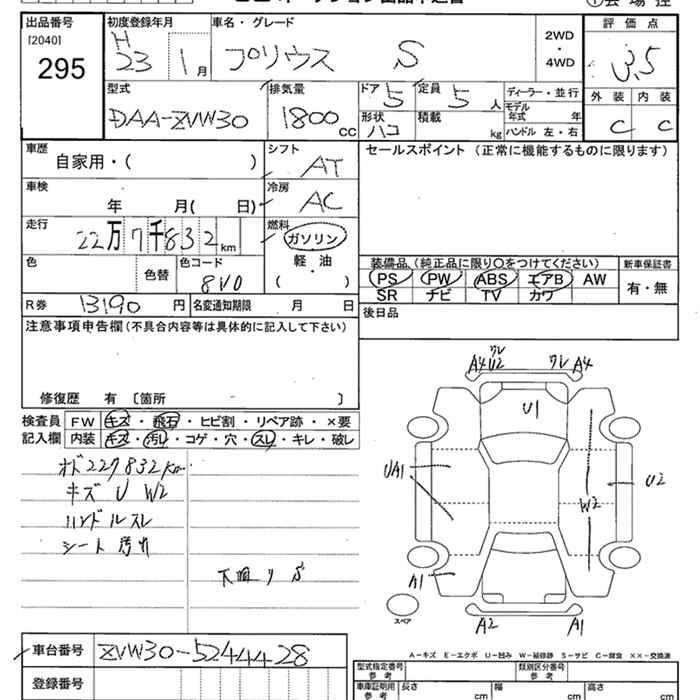 ①会場控
出品番号 初度登録年月 車名・グレード 評価点
[2040] H
295 23 1月 プリウス S 2WD・4WD 3.5
型式 排気量 ドア 5 定員 5人 ディーラー・並行 外装 内装
DAA-ZVW30 1800cc 形状 ハコ 積載 kg モデル年式 年 C C
ハンドル 左・右
車歴 シフト セールスポイント (正常に機能するものに限ります)
自家用・( ) AT
車検 冷房
年 月( 日) AC
走行 燃料
22万7千832km ガソリン
色 色コード 軽油
色替 8V0 ・( )
装備品 (純正品に限り○をつけてください) 新車保証書
PS PW ABS エアB AW 有・無
SR ナビ TV カワ
R券 13190円 名変通知期限 月 日
後日品
注意事項申告欄(不具合内容等は具体的に記入して下さい)
修復歴 有 〔箇所 〕
検査員 FW キズ・飛石・ヒビ割・リペア跡・×要
記入欄 内装 キズ・汚レ・コゲ・穴・スレ・キレ・破レ
オド227832km
キズ U W2
ハンドルスレ
シート汚れ
下廻りS
ワレ ワレ
A4 U2 A4
U1
UA1 U2
W2
A1
A2 A1
スペア
A-キズ E-エクボ U-凹み W-補修跡 S-サビ C-腐食 ××-交換済
車台番号 ZVW30-5244428
登録番号
型式指定番号 参考 類別区分番号 参考
車庫証明用 参考 長さ cm 幅 cm 高さ cm